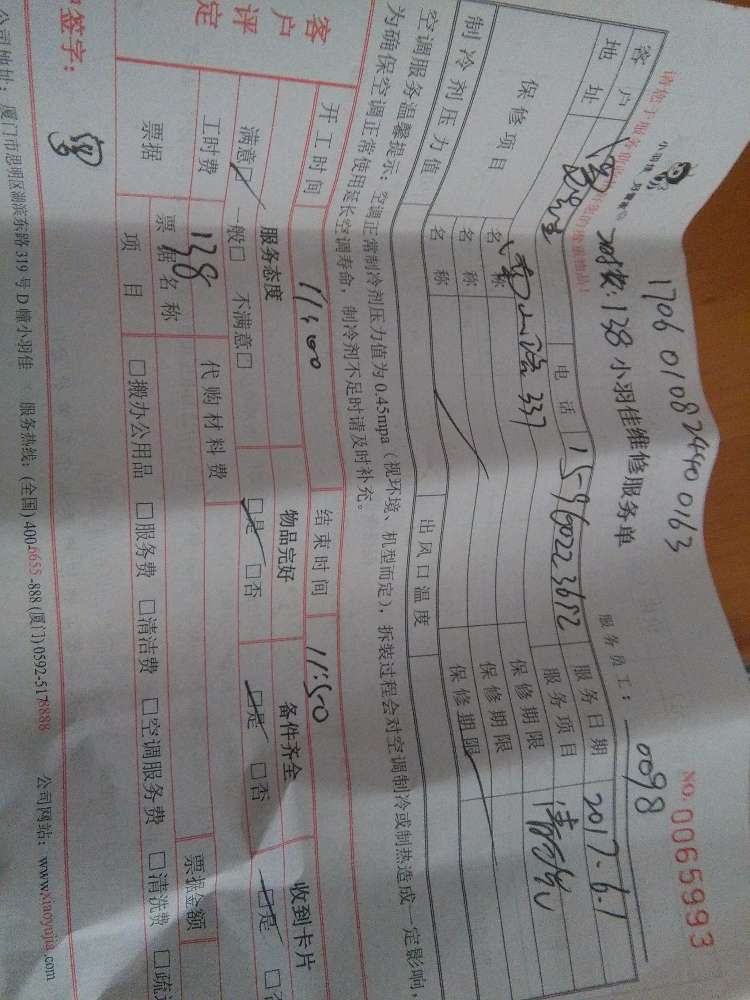 1706010824400163
NO. 0065993
小羽佳维修服务单
138
服务员工：0098
客户
电话 15960223652
服务日期 2017.6.1
地址
337
服务项目
保修项目
名称
保修期限
名称
保修期限
名称
保修期限
制冷剂压力值
出风口温度
空调服务温馨提示：空调正常制冷剂压力值为0.45mpa（视环境、机型而定），拆装过程会对空调制冷或制热造成一定影响，
为确保空调正常使用延长空调寿命，制冷剂不足时请及时补充。
开工时间 11:00
结束时间 11:50
客户评定
服务态度
物品完好
备件齐全
收到卡片
满意□ 一般□ 不满意□
□是 □否
□是 □否
□是
工时费 138
代购材料费
票据
票据名称
票据金额
项目
□搬办公用品 □服务费 □清洁费 □空调服务费 □清洗费
签字：
公司地址：厦门市思明区湖滨东路319号D幢小羽佳 服务热线：(全国)400-6655-888 (厦门)0592-5178888 公司网站：www.xiaoyujia.com